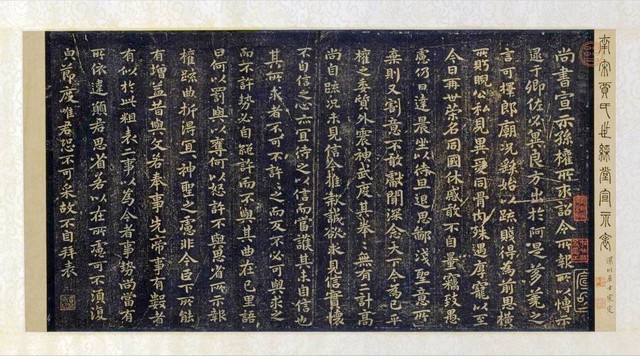 南宋賈氏世綵堂宣示表
尚書宣示孫權所求詔令所報所以博示
逮于卿佐必冀良方出於阿是芻蕘之
言可擇郎廟況繇始以疏賤得為前恩橫
所盻睨公私見異愛同骨肉殊遇厚寵以至
今日再世榮名同國休慼敢不自量竊致愚
慮仍日達晨坐以待旦退思鄙淺聖意所
棄則又割意不敢獻聞深念天下今為已平
權之委質外震神武度其拳拳無有二計高
尚自疏況未見信今推款誠欲求見信實懷
不自信之心亦宜待之以信而當護其未自信也
其所求者不可不許許之而反不必可與求之
而不許勢必自絕許而不與其曲在己里語
曰何以罰與以奪何以怒許不與思省所示報
權疏曲折得宜宜神聖之慮非今臣下所能
有增益昔與文若奉事先帝事有數者
有似於此粗表二事以為今者事勢尚當有
所依違願君思省若以在所慮可不須復
貌節度唯君恐不可采故不自拜表